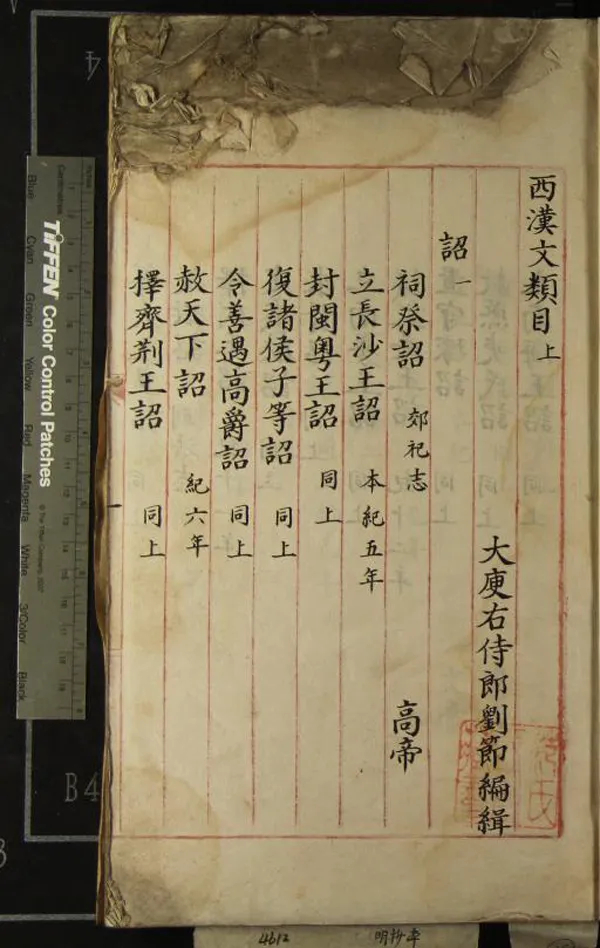 西漢文類目上
大庾右侍郎劉節編緝
詔一
祠祭詔 郊祀志 高帝
立長沙王詔 本紀五年
封閩粵王詔 同上
復諸侯子等詔 同上
令善遇高爵詔 同上
赦天下詔 紀六年
擇齊荆王詔 同上
4
B4
3
TIFFEN Color Control Patches
© The Tiffen Company, 2007
Centimetres
Inches
Blue Cyan Green Yellow Red Magenta White 3/Color Black
4612 明抄本